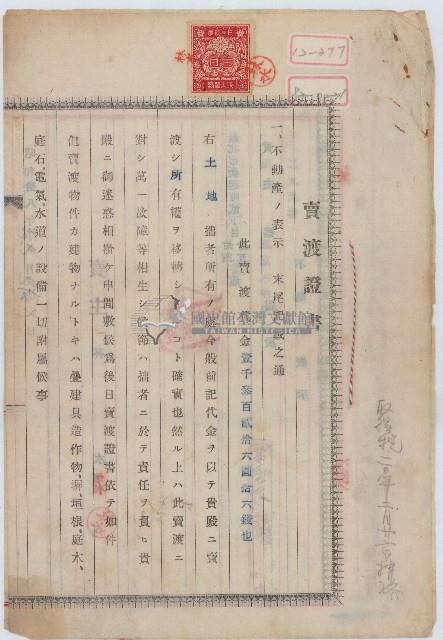 賣渡證書
一、不動渡ノ表示 末尾記載之通
此賣渡代金壹千參百貳拾六圓拾六錢也
右土地拙者所有ノ處今般前記代金ヲ以テ貴殿ニ賣
渡シ所有權ヲ移轉シ コト確實也然ル上ハ此賣渡ニ
對シ萬一故障等相生シ候節ハ拙者ニ於テ責任ヲ負ヒ貴
殿ニ御迷惑相掛ケ申間敷候爲後日賣渡證書依テ如件
但賣渡物件カ建物ナルトキハ疊建具造作物、塀、垣根、庭木、
庭石、電氣、水道ノ設備一切附屬候事
國史館臺灣文獻館
TAIWAN HISTORICA
12-277